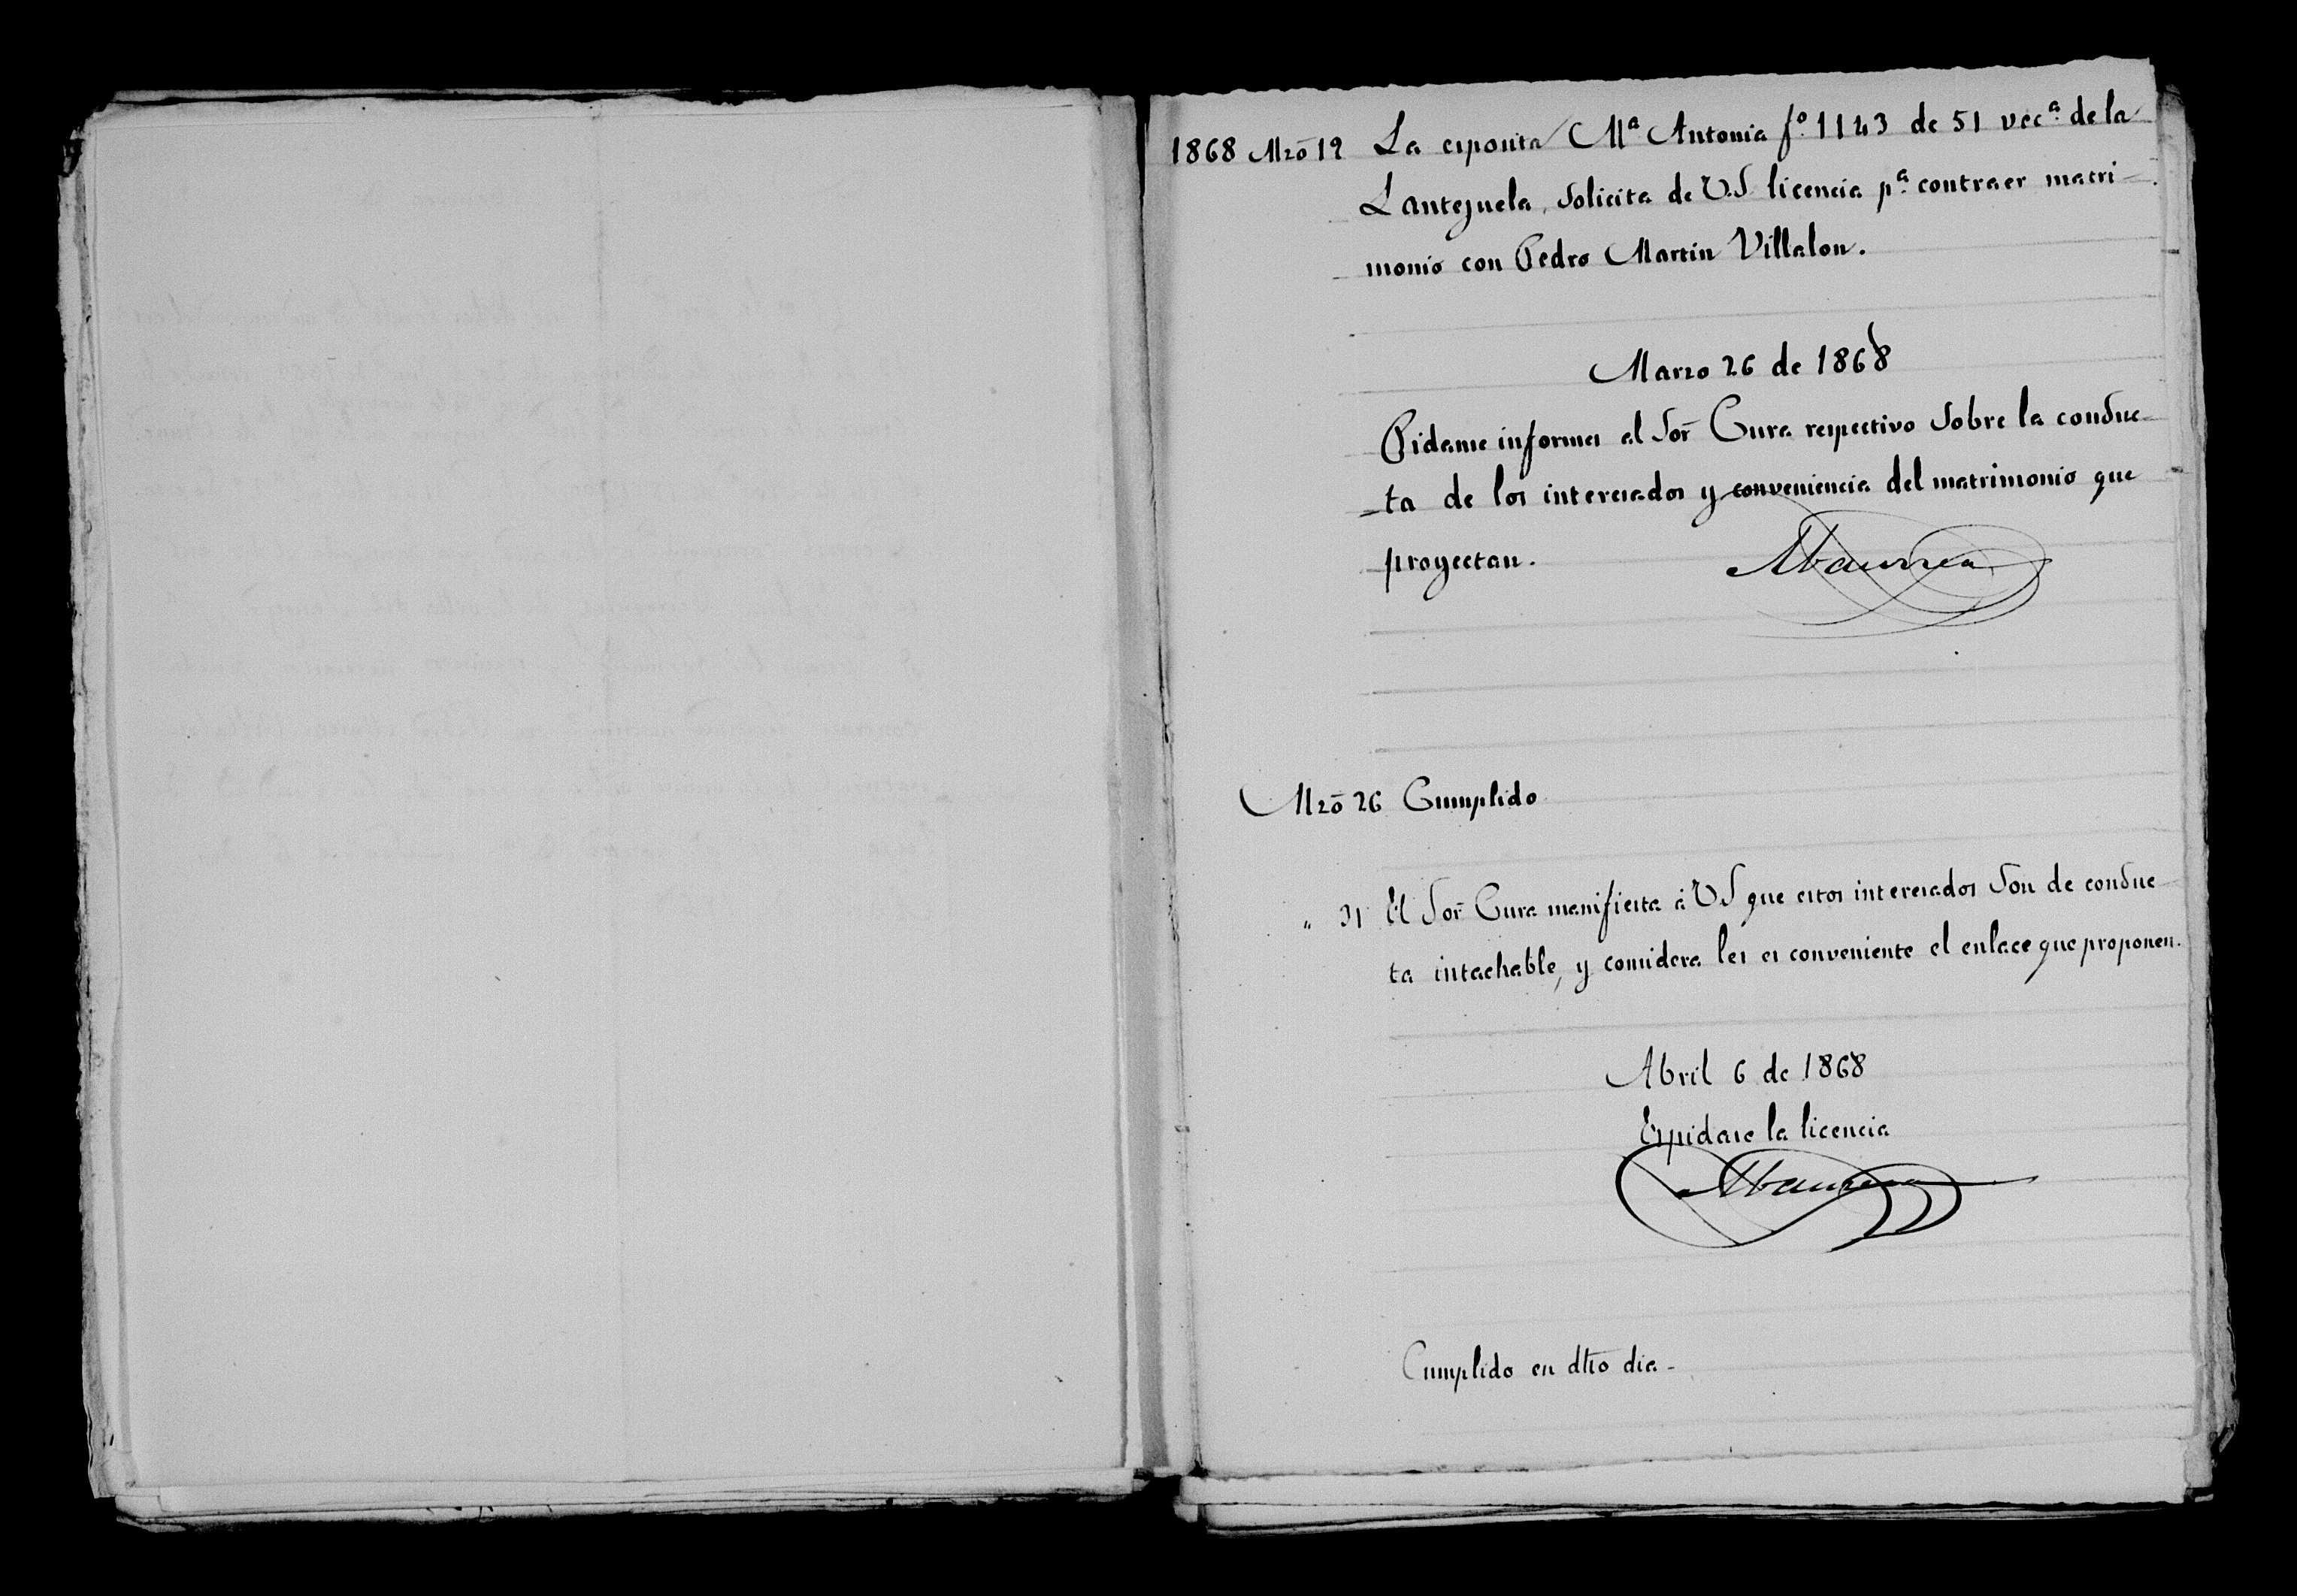 1868 Mzō 12 La esposita Mª Antonia fº 1143 de 51 vecª de la
Lantejuela, solicita de V.S. licencia pª contraer matri-
monio con Pedro Martin Villalon.
Marzo 26 de 1868
Pidanse informes al Sor Cura respectivo sobre la conduc-
ta de los interesados y conveniencia del matrimonio que
proyectan.
Abaurrea
Mzō 26 Cumplido
" 31 El Sor Cura manifiesta á VS que estos interesados son de conduc-
ta intachable, y considera les es conveniente el enlace que proponen.
Abril 6 de 1868
Espidase la licencia
Abaurrea
Cumplido en dho dia -